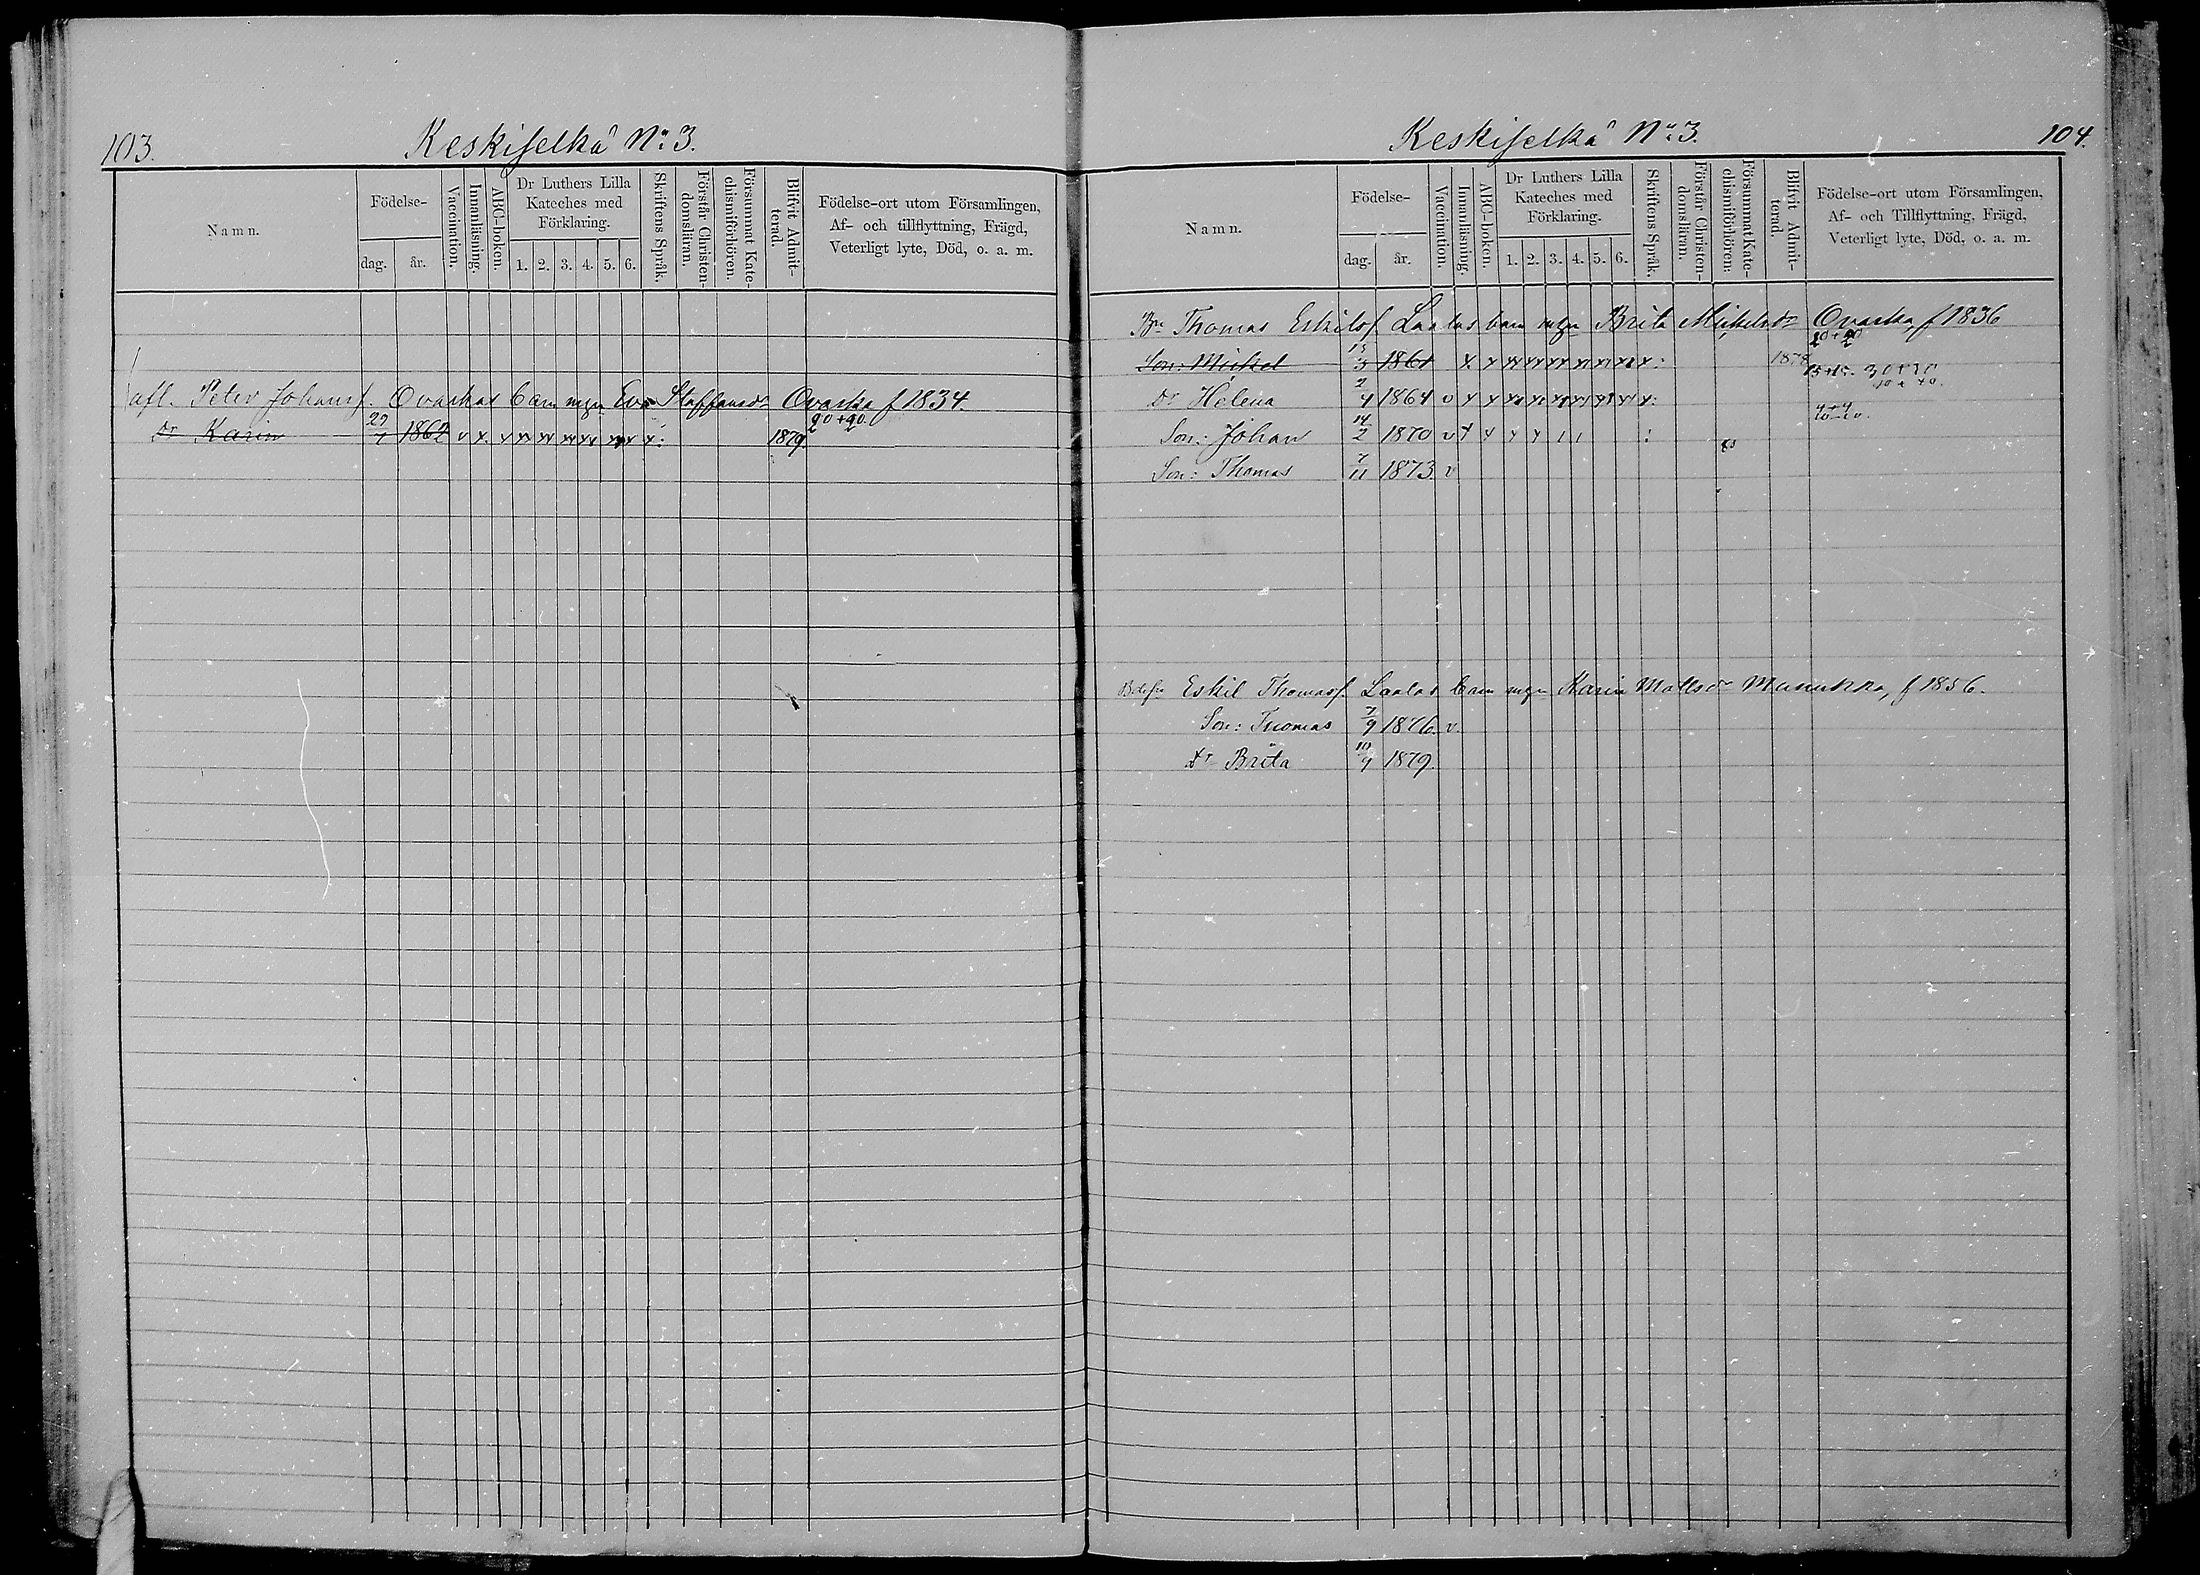 103.
Keskiselkä No 3.
Namn.
Födelse-
dag.
år.
Vaccination.
Innanläsning.
ABC-boken.
Dr Luthers Lilla
Kateches med
Förklaring.
1. 2. 3. 4. 5. 6.
Skriftens Språk.
Förstår Christen-
domsläran.
Försummat Kate-
chismiförhören.
Blifvit Admit-
terad.
Födelse-ort utom Församlingen,
Af- och tillflyttning, Frägd,
Veterligt lyte, Död, o. a. m.
afl. Peter Johanss. Ovaskas barn m. Eva Staffansdr Ovaska f 1834.
20+20.
Dr Karin 1862 v x x 1879
Keskiselkä No 3.
104.
Namn.
Födelse-
dag.
år.
Vaccination.
Innanläsning.
ABC-boken.
Dr Luthers Lilla
Kateches med
Förklaring.
1. 2. 3. 4. 5. 6.
Skriftens Språk.
Förstår Christen-
domsläran.
Försummat Kate-
chismiförhören.
Blifvit Admit-
terad.
Födelse-ort utom Församlingen,
Af- och Tillflyttning, Frägd,
Veterligt lyte, Död, o. a. m.
Thomas Eskilss. Laalas barn m. Brita Mickelsdr Ovaska, f 1836
Son: Mickel 1861 1878
Dr Helena 2/4 1864 v
Son: Johan 14/2 1870 v
Son: Thomas 7/11 1873. v
Eskil Thomass. Laalas barn m. Karin Mattsdr Munukka, f 1856.
Son: Thomas 7/9 1876. v.
Dr Brita 10/4 1879.